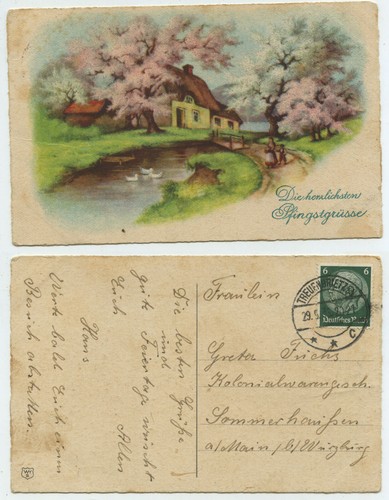 Die herzlichsten
Pfingstgrüsse
Die besten Grüße
und
gute Feiertage wünscht
Euch Allen
Hans
Werde bald Euch einen
Besuch abstatten.
6 6
Deutsches Reich
TREUENBRIETZEN
29.5.
c
Fräulein
Greta Fuchs
Kolonialwarengesch.
Sommerhaußen
a/Main /b/ Würzburg